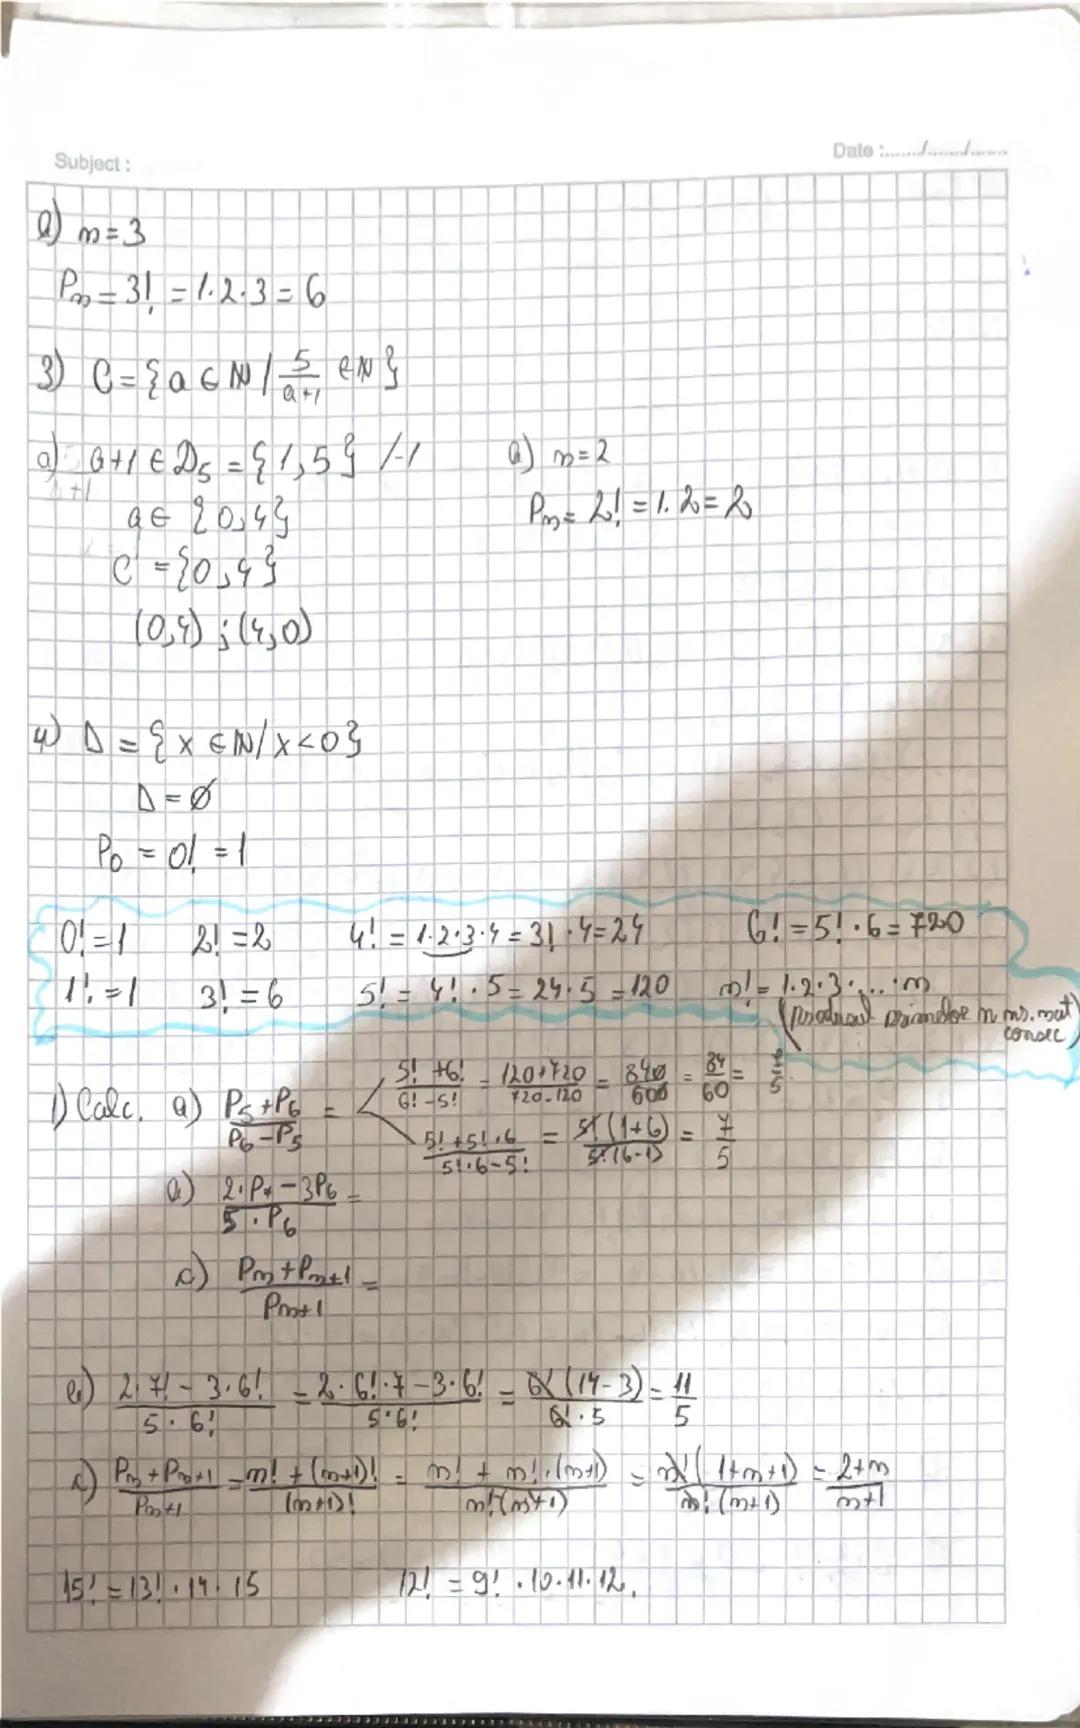 Subject :
Date :......../......../........
b) n=3
Pn = 3! = 1·2·3 = 6
3) C = {a ∈ N / 5/(a+1) ∈ N}
a) a+1 ∈ D5 = {1,5} /-1
a ∈ {0,4}
C = {0,4}
(0,4) ; (4,0)
b) n=2
Pn = 2! = 1·2 = 2
4) D = {x ∈ N / x<0}
D = Ø
P0 = 0! = 1
0! = 1 2! = 2 4! = 1·2·3·4 = 3!·4 = 24 6! = 5!·6 = 720
1! = 1 3! = 6 5! = 4!·5 = 24·5 = 120 n! = 1·2·3·...·n
(produsul primelor n nr. nat consec)
1) Calc. a) (P5+P6)/(P6-P5) =
(5!+6!)/(6!-5!) = (120+720)/(720-120) = 840/600 = 84/60 = 7/5
(5!+5!·6)/(5!·6-5!) = 5!(1+6)/5!(6-1) = 7/5
b) (2·P7-3P6)/(5·P6) =
c) (Pn+Pn+1)/Pn+1 =
b) (2·7!-3·6!)/(5·6!) = (2·6!·7-3·6!)/(5·6!) = 6!(14-3)/(6!·5) = 11/5
c) (Pn+Pn+1)/Pn+1 = (n!+(n+1)!)/(n+1)! = (n!+n!·(n+1))/n!(n+1) = n!(1+n+1)/n!(n+1) = (2+n)/(n+1)
15! = 13!·14·15 12! = 9!·10·11·12.